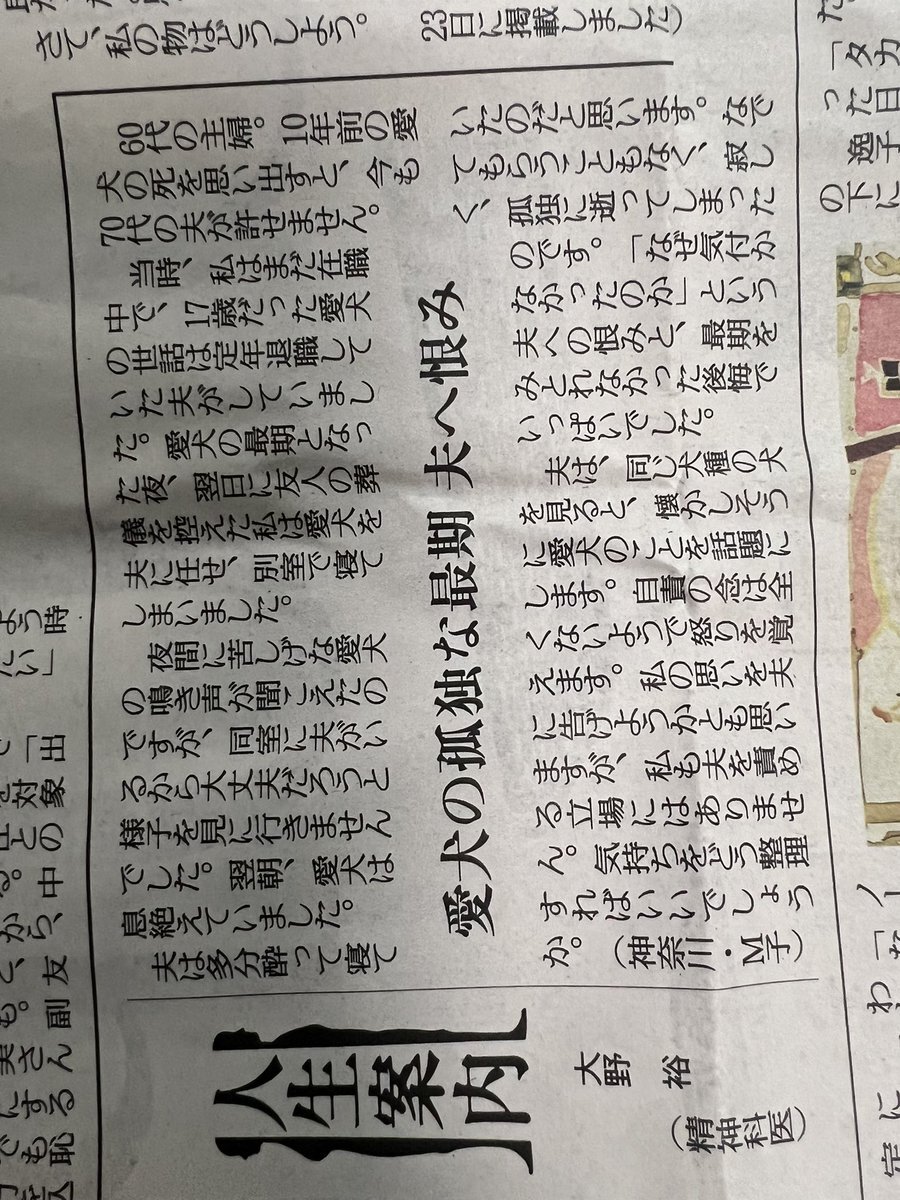 さて、私の物はどうしよう。
23日に掲載しました)
人生案内
大野 裕
(精神科医)
愛犬の孤独な最期 夫へ恨み
60代の主婦。10年前の愛
犬の死を思い出すと、今も
70代の夫が許せません。
当時、私はまだ在職
中で、17歳だった愛犬
の世話は定年退職して
いた夫がしていまし
た。愛犬の最期となっ
た夜、翌日に友人の葬
儀を控えた私は愛犬を
夫に任せ、別室で寝て
しまいました。
夜間に苦しげな愛犬
の鳴き声が聞こえたの
ですが、同室に夫がい
るから大丈夫だろうと
様子を見に行きません
でした。翌朝、愛犬は
息絶えていました。
夫は多分酔って寝て
いたのだと思います。なで
てもらうこともなく、寂し
く、孤独に逝ってしまった
のです。「なぜ気付か
なかったのか」という
夫への恨みと、最期を
みとれなかった後悔で
いっぱいでした。
夫は、同じ犬種の犬
を見ると、懐かしそう
に愛犬のことを話題に
します。自責の念は全
くないようで怒りを覚
えます。私の思いを夫
に告げようかとも思い
ますが、私も夫を責め
る立場にはありませ
ん。気持ちをどう整理
すればいいでしょう
か。
(神奈川・M子)